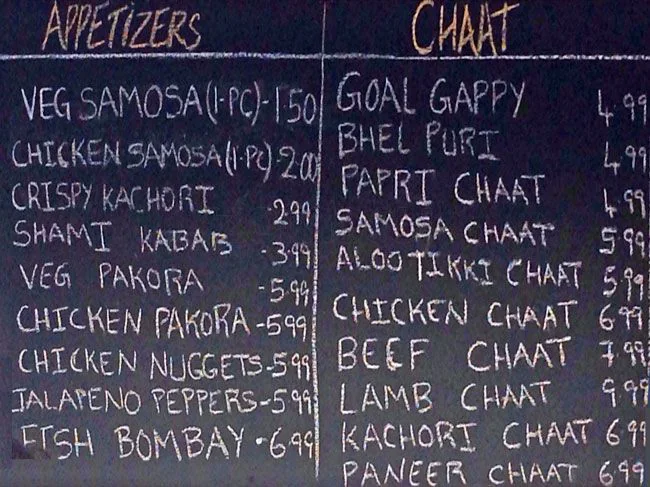 APPETIZERS
VEG SAMOSA (1-PC)-1.50
CHICKEN SAMOSA (1-PC)-2.00
CRISPY KACHORI .299
SHAMI KABAB .399
VEG PAKORA -599
CHICKEN PAKORA -599
CHICKEN NUGGETS-599
JALAPENO PEPPERS-599
FISH BOMBAY -699
CHAAT
GOAL GAPPY 4.99
BHEL PURI 4.99
PAPRI CHAAT 4.99
SAMOSA CHAAT 5.99
ALOO TIKKI CHAAT 5.99
CHICKEN CHAAT 6.99
BEEF CHAAT 7.99
LAMB CHAAT 9.99
KACHORI CHAAT 6.99
PANEER CHAAT 6.99